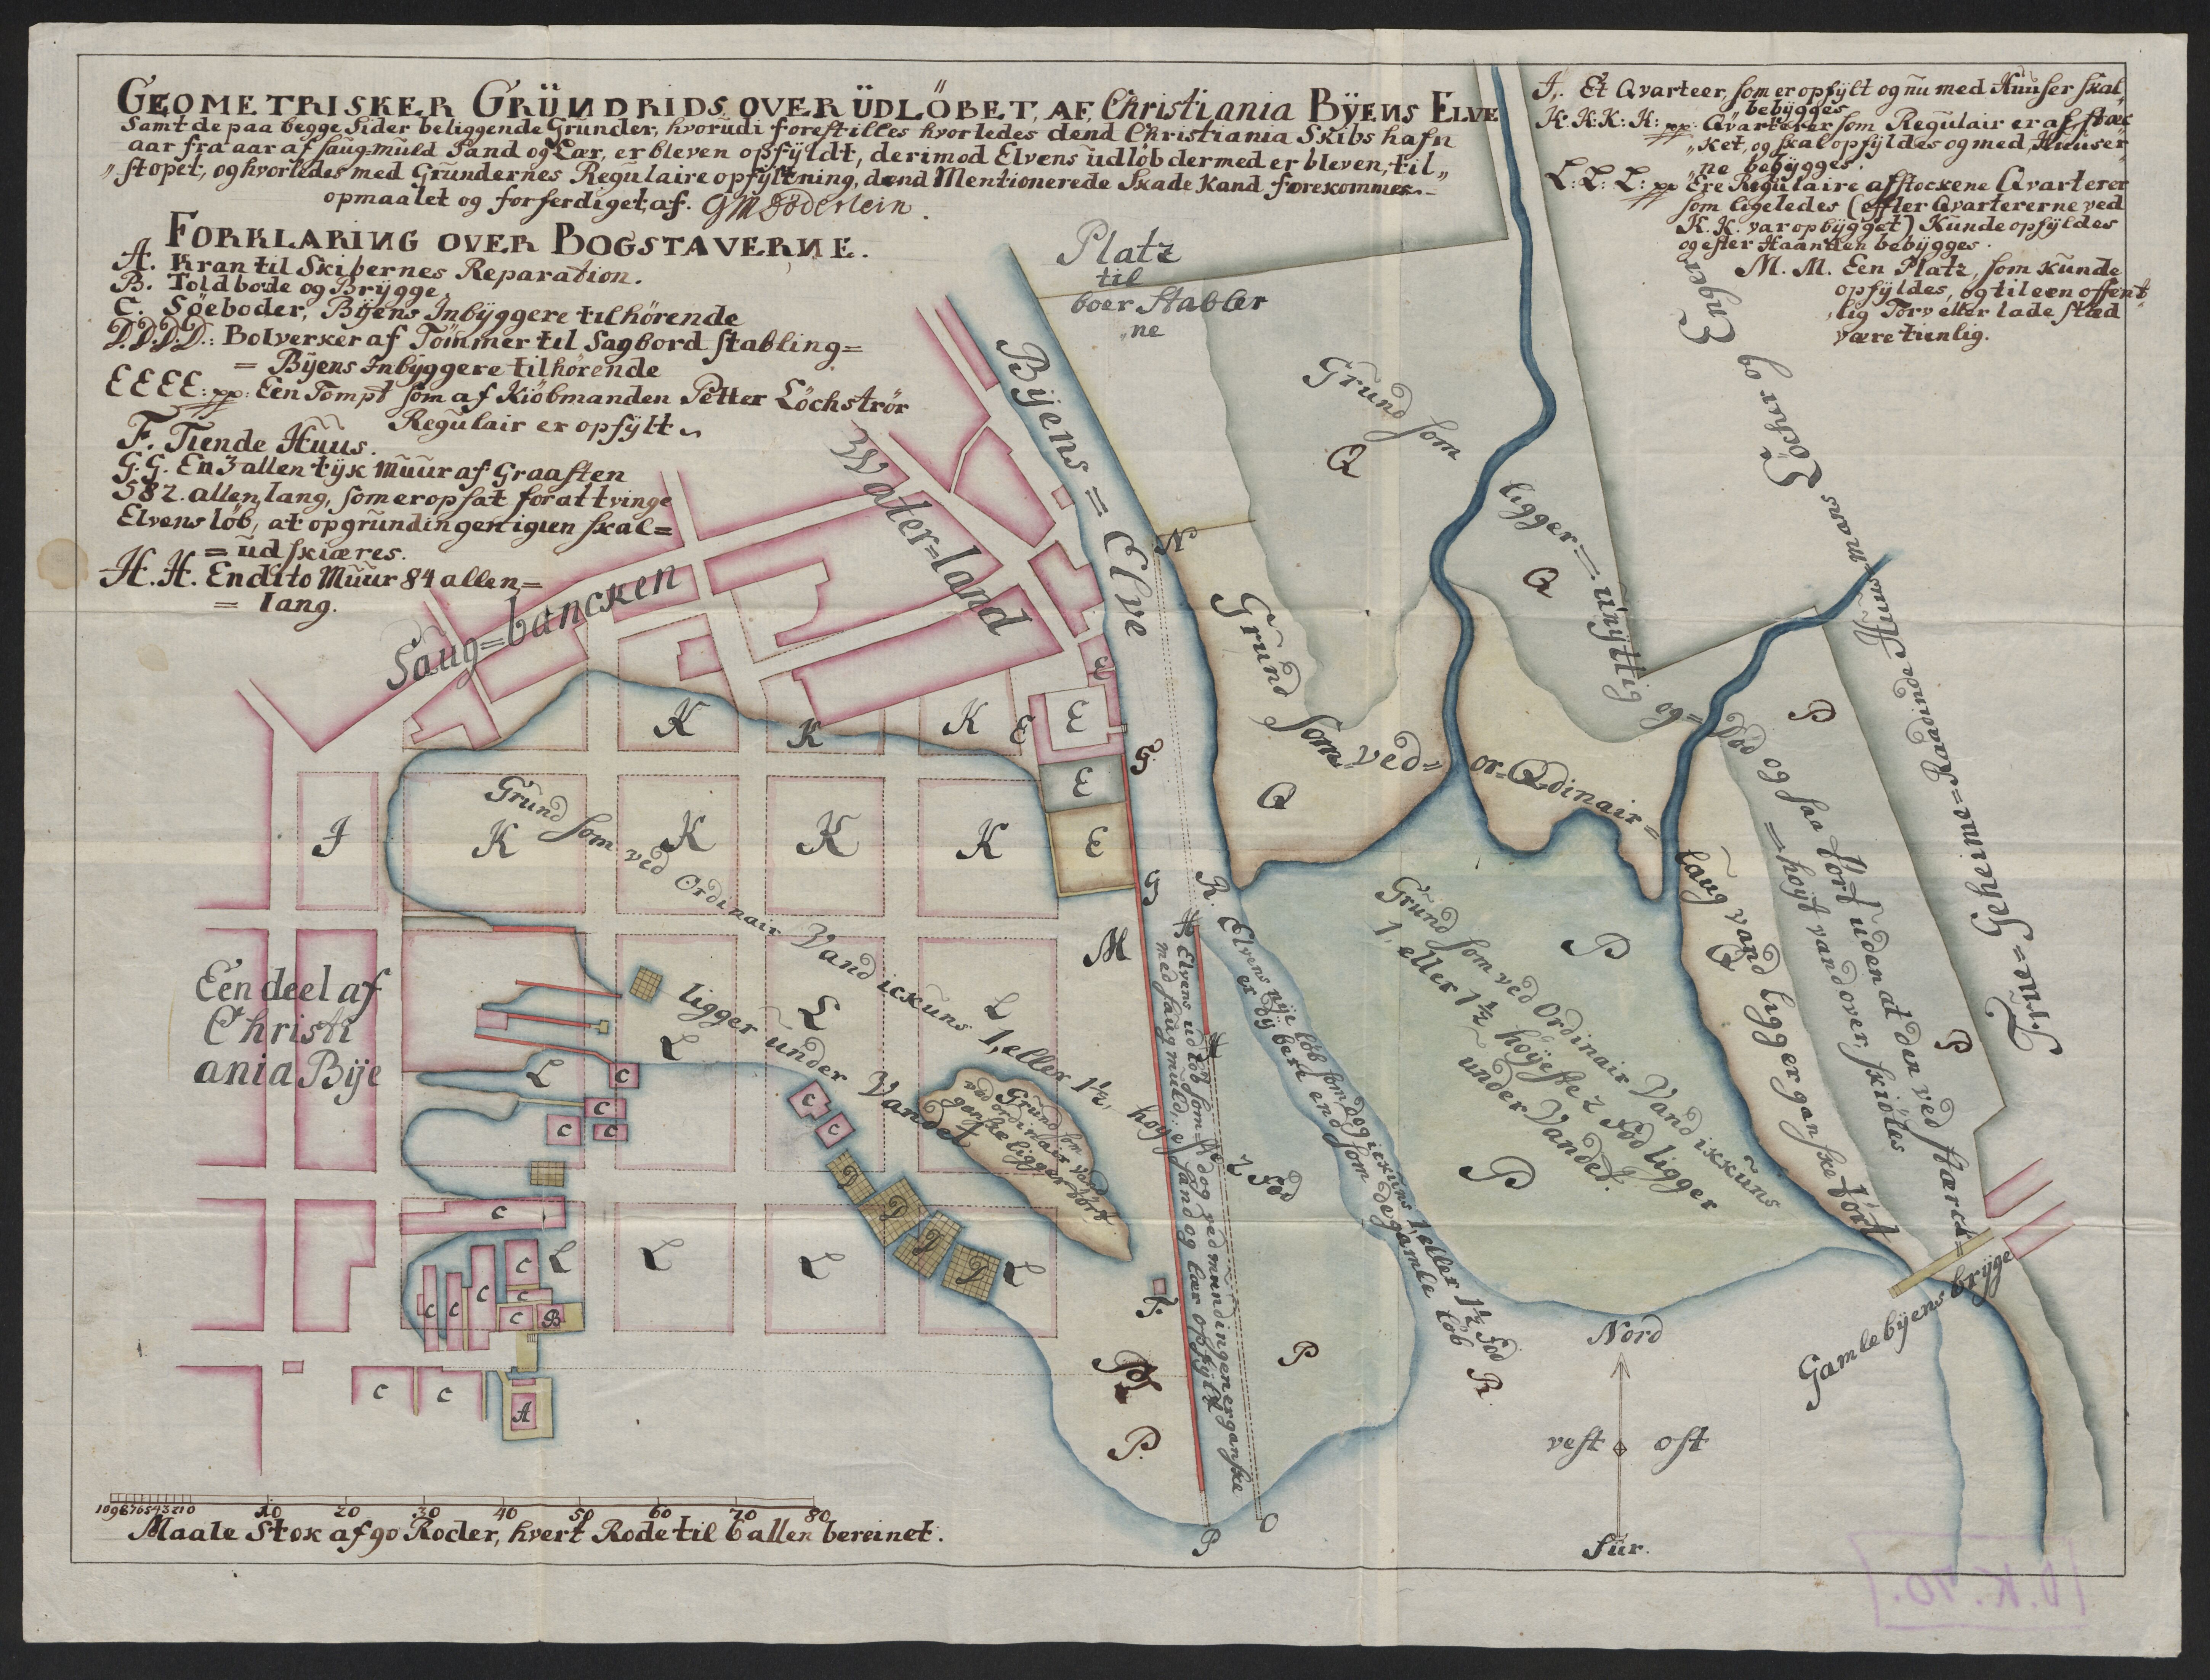 GEOMETRISKER GRÜNDRIDS OVER ÜDLÖBET, AF, Christiania BŸENS ELVE
Samt de paa begge Sider beliggende Gründer, hvorüdi forestilles hvorledes dend Christiania Skibs hafn
aar fra aar af saug-muld Sand og Lær, er bleven opfÿldt, derimod Elvens üdlöb dermed er bleven, til„
„stopet, og hvorledes med Gründernes Regulaire opfÿltning, dend Mentionerede Skade Kand forekommes.
opmaalet og forferdiget, af. G M Döderlein.
FORKLARING OVER BOGSTAVERNE.
A. Kran til Skibernes Reparation.
B. Toldbode og Brÿgge
C. Söeboder, Bÿens Inbÿggere tilhörende
D.D.D.D.: Bolverker af Tömmer til Sagbord stabling=
= Bÿens Inbÿggere tilhörende
E E E E: pp: Een Tompt som af Kiöbmanden Petter Löchströr
Regulair er opfÿlt
F. Tiende Huus.
G. G. En 3 allen tÿk Muur af Graasten
582. allen lang, som er opsat for at tvinge
Elvens löb, at opgründingen igien skal=
= üdskiæres.
H. H. En dito Muur 84 allen=
= lang.
J. Et Qvarteer, som er opfÿlt og nu med Huuser skal
bebÿgges
K: K: K: K: pp: Qvarterer som Regulair er af stæc
„ket, og skal opfÿldes og med, Huuser
„ne bebÿgges.
L: L: L: pp Ere Regulaire afstockene Qvarterer
som ligeledes (effter Qvartererne ved
K. K. var opbÿgget) Kunde opfÿldes
og efter Haanden bebÿgges.
M. M. Een Platz, som kunde
opfÿldes, og til een offent
„lig Torv eller lade stæd
være tienlig.
Platz
til
boer Stabler
„ne
Bÿens = Elve
Water=land
Saug=bancken
Grund som
Q
ligger = unÿttig
Q
og = Död og saa stort uden at den ved stærck=
= höyt vand over, skiöles
Löchur og Enger
True = Geheime = Raadinde Huus mans
N
Grund som ved= or=Qdinair=
laug vand ligger ganske tört
Q
Q
P
P
E
E
E
E
E
K
K
K
K
K
K
K
J
G.
G
M
Grund som ved Ordinair Vand ickuns 1, eller 1½, höy 2 Fod
ligger under Vandet
Een deel af
Christi
ania Bÿe
L
L
L
L
L
L
L
L
L
C
C
C
C
C
C
D
D
D
D
Grund som
ved ordinair vand
ganske ligger tört
R.
H
H
Elvens ud löb som dog ved mundingen er ganske
med saug muld, sand og lær opfÿlt
Elvens nÿe löb som dog ickuns 1, eller 1½ Fod
er dÿbere end som de gamle löb
R.
Grund som ved Ordinair Vand ickuns
1, eller 1½ höÿeste 2 Fod ligger
under Vandet.
P
P
P
P.
F.
C
C
C
C
C
C
C
C
B
C
C
A
P
O
Gamlebÿens brÿge
Nord
vest
ost
sür.
10 9 8 7 6 5 4 3 2 1 0 10 20 30 40 50 60 70 80
Maale Stok af 90 Roder, hvert Rode til 6 allen bereinet.